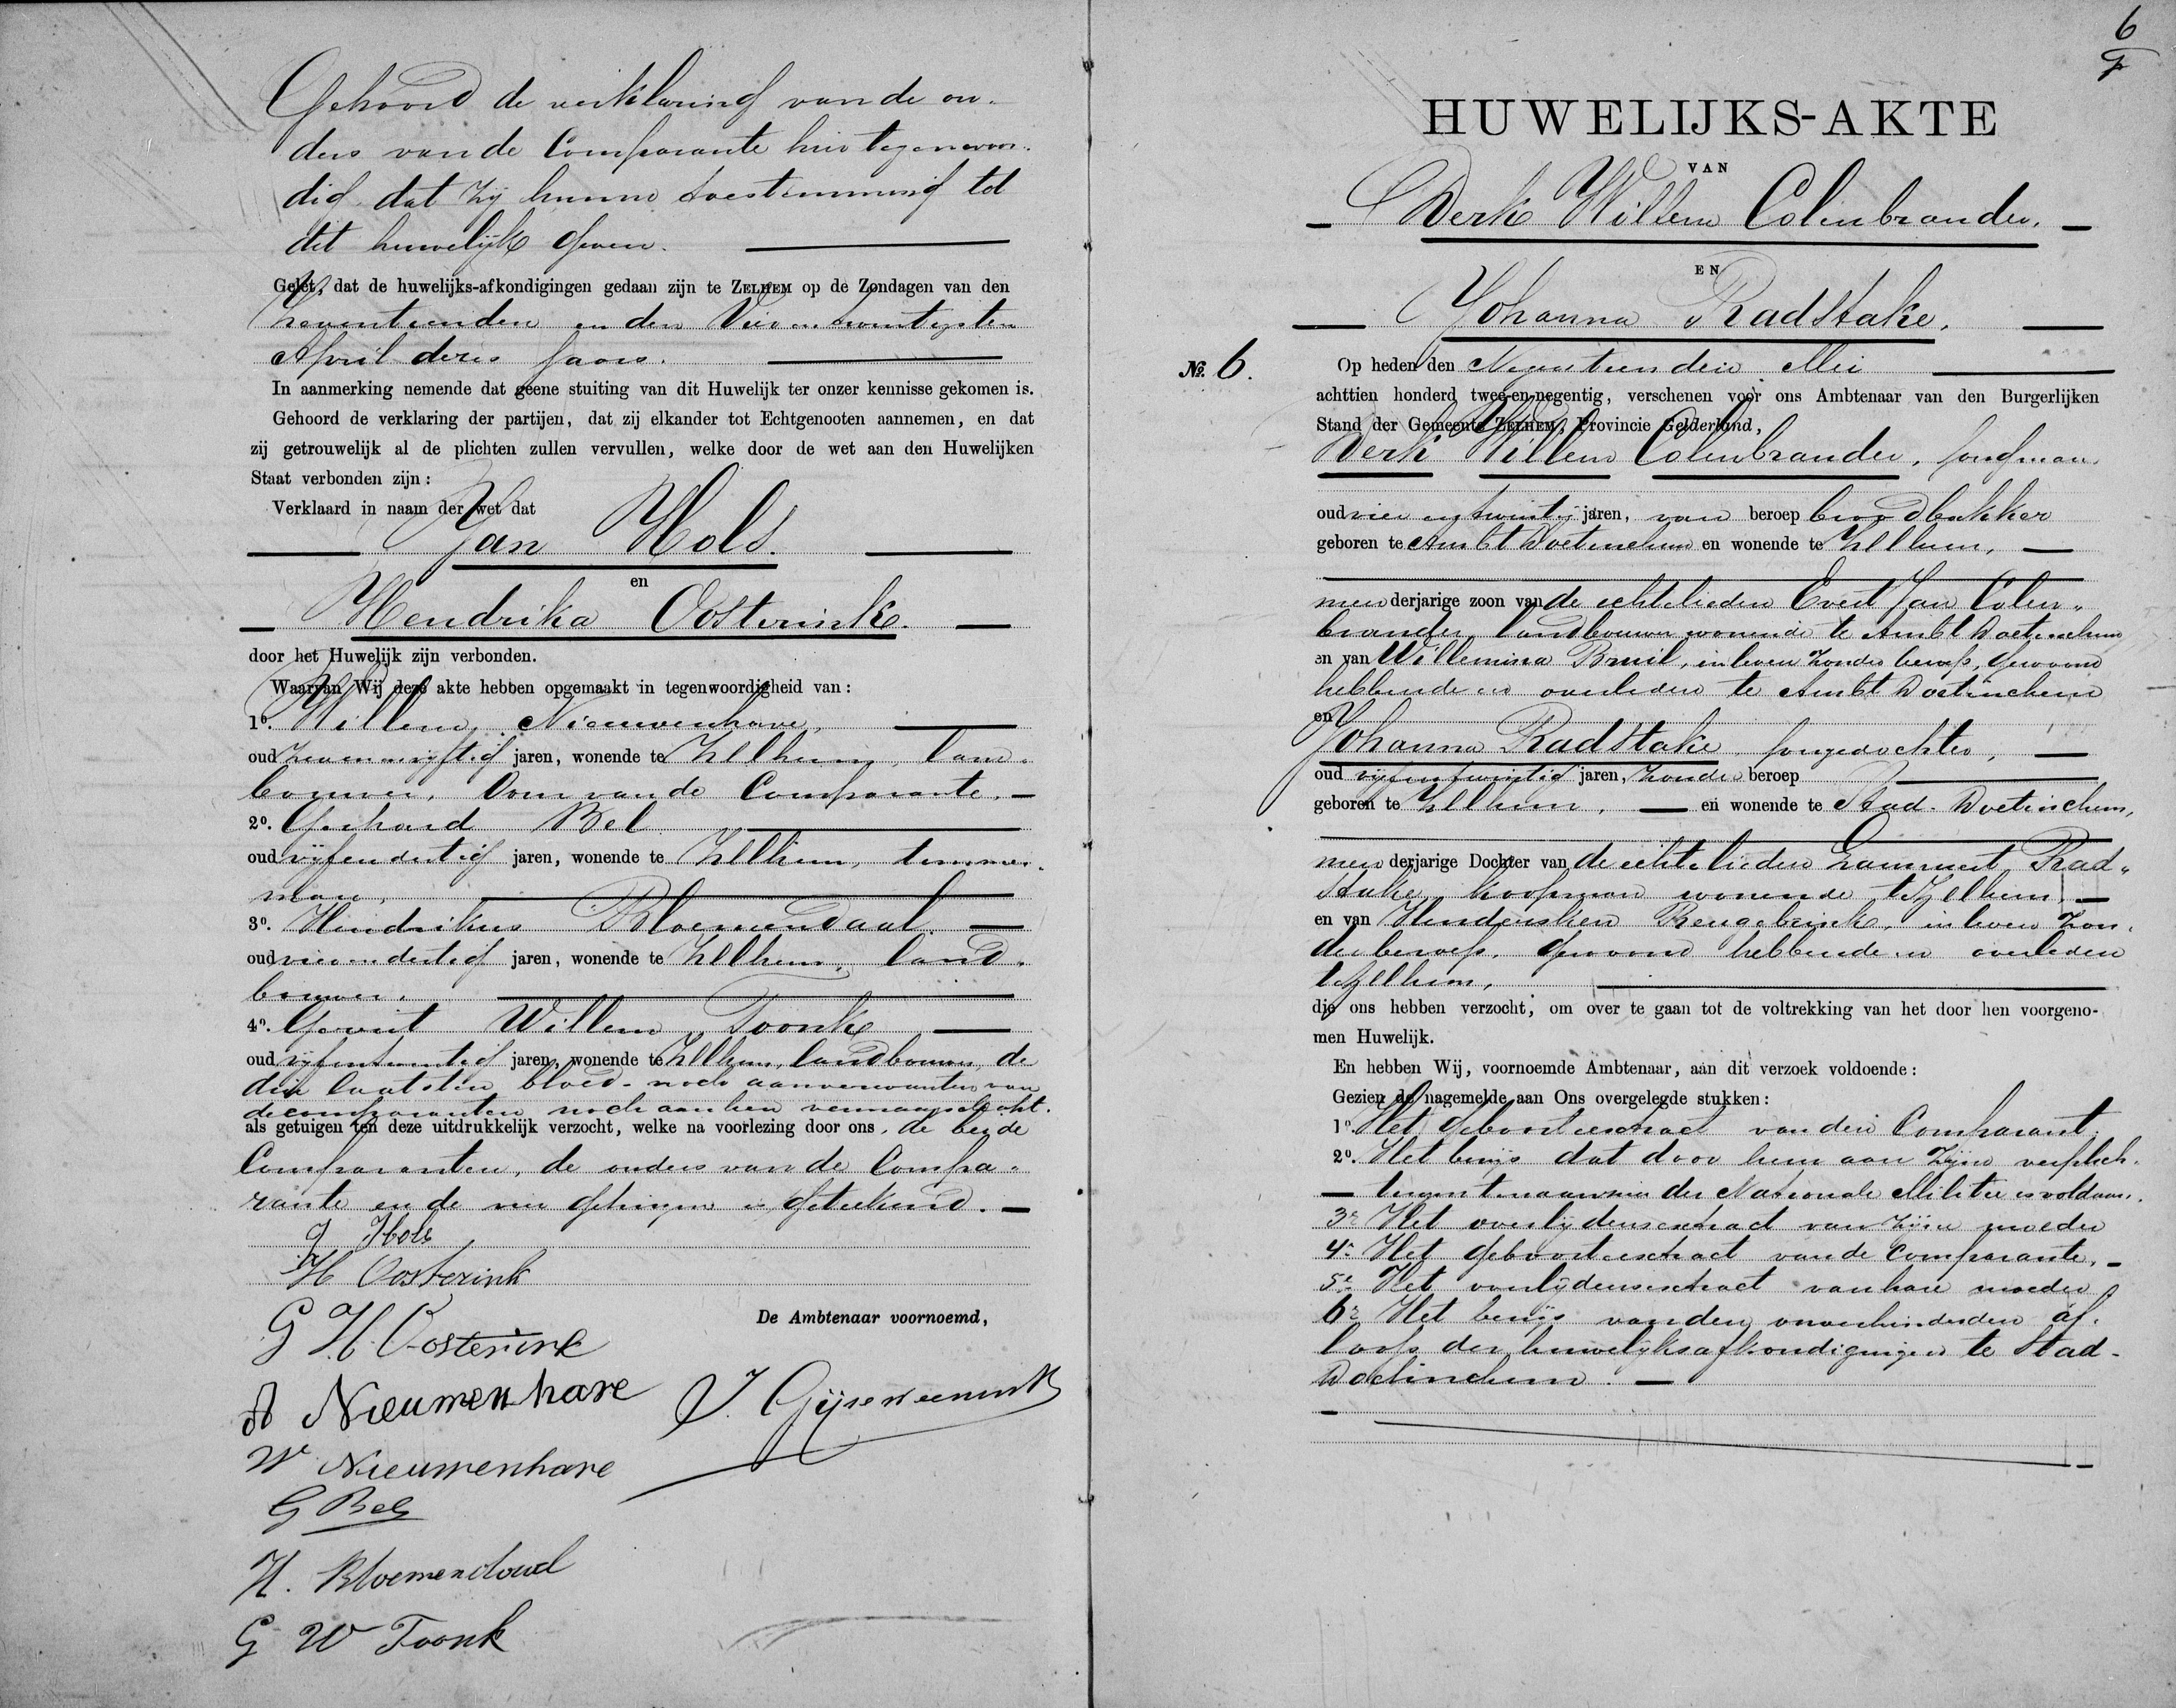 Gehoord de verklaring van de ou-
ders van de Comparante hier tegenwoor-
dig dat zij hunne toestemming tot
dit huwelijk geven.
Gelet, dat de huwelijks-afkondigingen gedaan zijn te ZELHEM op de Zondagen van den
zeventienden en den Vier en twintigsten
April dezes jaars.
In aanmerking nemende dat geene stuiting van dit Huwelijk ter onzer kennisse gekomen is.
Gehoord de verklaring der partijen, dat zij elkander tot Echtgenooten aannemen, en dat
zij getrouwelijk al de plichten zullen vervullen, welke door de wet aan den Huwelijken
Staat verbonden zijn:
Verklaard in naam der wet dat
Jan Hols.
en
Hendrika Oosterink.
door het Huwelijk zijn verbonden.
Waarvan Wij deze akte hebben opgemaakt in tegenwoordigheid van:
1o. Willem Nieuwenhave,
oud zevenenvijftig jaren, wonende te Zelhem, land-
bouwer, Oom van de Comparante.
2o. Gerhard Bel
oud vijfendertig jaren, wonende te Zelhem, timmer-
man,
3o. Hendrikus Bloemendaal.
oud vierendertig jaren, wonende te Zelhem, land-
bouwer.
4o. Gerrit Willem Toonk
oud vijfentwintig jaren, wonende te Zelhem, landbouwer, de
drie laatsten bloed- noch aanverwanten van
de comparanten noch aan hen vermaagschapt.
als getuigen ten deze uitdrukkelijk verzocht, welke na voorlezing door ons, de beide
Comparanten, de ouders van de Compa-
rante en de vier getuigen is geteekend.
J Hols
H Oosterink
G H Oosterink
De Ambtenaar voornoemd,
A Nieuwenhave
J. Gijseweenink
W Nieuwenhave
G Bel
H. Bloemendaal
G W Toonk
6
HUWELIJKS-AKTE
VAN
Derk Willem Colenbrander.
EN
Johanna Radstake.
No. 6.
Op heden den Negentienden Mei
achttien honderd twee-en-negentig, verschenen voor ons Ambtenaar van den Burgerlijken
Stand der Gemeente ZELHEM, Provincie Gelderland,
Derk Willem Colenbrander, jongman
oud vier en twintig jaren, van beroep broodbakker
geboren te Ambt Doetinchem en wonende te Zelhem,
meerderjarige zoon van de echtelieden Evert Jan Colen-
brander, landbouwer wonende te Ambt Doetinchem
en van Willemina Bruil, in leven zonder beroep, gewoond
hebbende en overleden te Ambt Doetinchem
en
Johanna Radstake, jongedochter,
oud vijfentwintig jaren, zonder beroep
geboren te Zelhem, en wonende te Stad-Doetinchem,
meerderjarige Dochter van de echtelieden Lammert Rad-
stake, koopman wonende te Zelhem.
en van Hendersken Rengelink, in leven zon-
der beroep, gewoond hebbende en overleden
te Zelhem,
die ons hebben verzocht, om over te gaan tot de voltrekking van het door hen voorgeno-
men Huwelijk.
En hebben Wij, voornoemde Ambtenaar, aan dit verzoek voldoende:
Gezien de nagemelde aan Ons overgelegde stukken:
1o. Het geboorteextract van den Comparant.
2o. Het bewijs dat door hem aan zijne verplich-
tingen ten aanzien der Nationale Militie is voldaan.
3o Het overlijdensextract van zijne moeder
4o Het geboorteextract van de Comparante.
5o Het overlijdensextract van hare moeder
6o Het bewijs van den onverhinderden af-
loop der huwelijksafkondigingen te Stad-
Doetinchem.